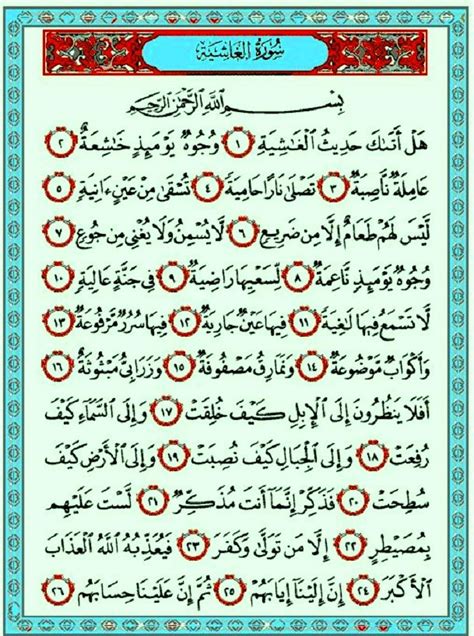 سُورَةُ الغَاشِيَةِ
بِسْمِ اللَّهِ الرَّحْمَٰنِ الرَّحِيمِ
هَلْ أَتَىٰكَ حَدِيثُ ٱلْغَٰشِيَةِ ١ وُجُوهٌ يَوْمَئِذٍ خَٰشِعَةٌ ٢
عَامِلَةٌ نَّاصِبَةٌ ٣ تَصْلَىٰ نَارًا حَامِيَةً ٤ تُسْقَىٰ مِنْ عَيْنٍ ءَانِيَةٍ ٥
لَّيْسَ لَهُمْ طَعَامٌ إِلَّا مِن ضَرِيعٍ ٦ لَّا يُسْمِنُ وَلَا يُغْنِي مِن جُوعٍ ٧
وُجُوهٌ يَوْمَئِذٍ نَّاعِمَةٌ ٨ لِّسَعْيِهَا رَاضِيَةٌ ٩ فِي جَنَّةٍ عَالِيَةٍ ١٠
لَّا تَسْمَعُ فِيهَا لَٰغِيَةً ١١ فِيهَا عَيْنٌ جَارِيَةٌ ١٢ فِيهَا سُرُرٌ مَّرْفُوعَةٌ ١٣
وَأَكْوَابٌ مَّوْضُوعَةٌ ١٤ وَنَمَارِقُ مَصْفُوفَةٌ ١٥ وَزَرَابِيُّ مَبْثُوثَةٌ ١٦
أَفَلَا يَنظُرُونَ إِلَى ٱلْإِبِلِ كَيْفَ خُلِقَتْ ١٧ وَإِلَى ٱلسَّمَآءِ كَيْفَ
رُفِعَتْ ١٨ وَإِلَى ٱلْجِبَالِ كَيْفَ نُصِبَتْ ١٩ وَإِلَى ٱلْأَرْضِ كَيْفَ
سُطِحَتْ ٢٠ فَذَكِّرْ إِنَّمَآ أَنتَ مُذَكِّرٌ ٢١ لَّسْتَ عَلَيْهِم
بِمُصَيْطِرٍ ٢٢ إِلَّا مَن تَوَلَّىٰ وَكَفَرَ ٢٣ فَيُعَذِّبُهُ ٱللَّهُ ٱلْعَذَابَ
ٱلْأَكْبَرَ ٢٤ إِنَّ إِلَيْنَآ إِيَابَهُمْ ٢٥ ثُمَّ إِنَّ عَلَيْنَا حِسَابَهُم ٢٦